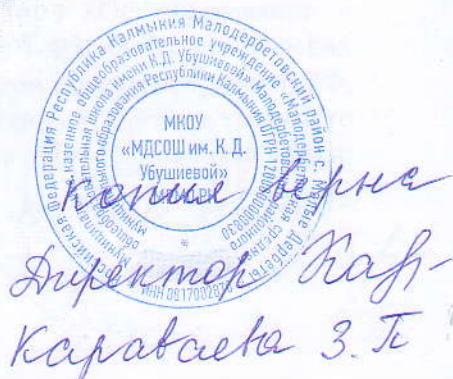 Российская Федерация Республика Калмыкия Малодербетовский район с. Малые Дербеты
Муниципальное казенное общеобразовательное учреждение «Малодербетовская средняя
общеобразовательная школа имени К.Д. Убушиевой» Малодербетовского
муниципального образования Республики Калмыкия ОГРН
ИНН
МКОУ
«МДСОШ им. К. Д.
Убушиевой»
копия верна
Директор
Караваева З. П